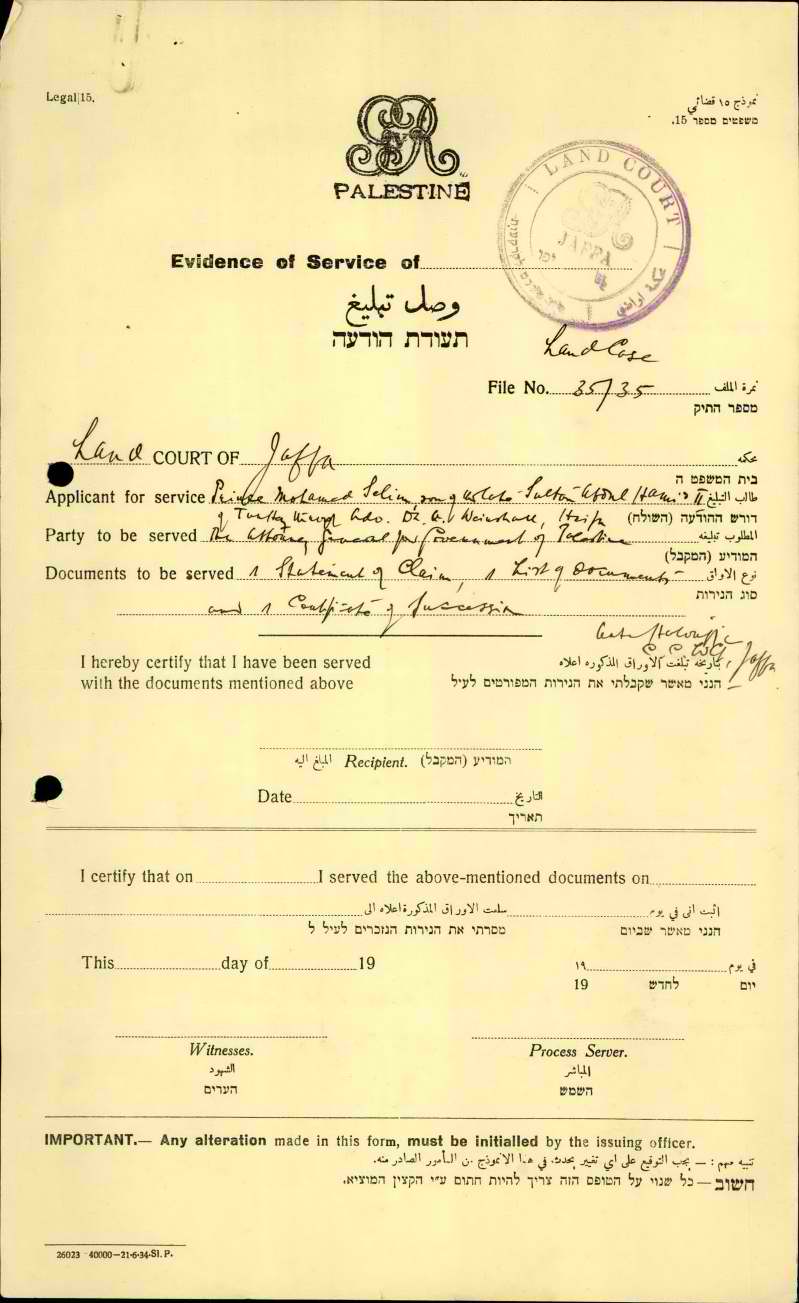 Legal 15.
نموذج ١٥ قضائي
משפטים מספר 15.
GRV
PALESTINE
LAND COURT
JAFFA
Evidence of Service of
وصل تبليغ
תעודת הודעה
Land Case
File No. 35/35 نمرة الملف
מספר התיק
Land COURT OF Jaffa محكمة
בית המשפט ה
Applicant for service Prince Mohamed Selim, son of the late Sultan Abdul Hamid II طالب التبليغ
of Turkey through Adv. Dr. A. Weinshall, Haifa דורש ההודעה (השולח)
Party to be served The Attorney General for Government of Palestine المطلوب تبليغه
המודיע (המקבל)
Documents to be served 1 Statement of Claim, 1 List of documents نوع الاوراق
סוג הנירות
and 1 Certificate of Succession
Jaffa
I hereby certify that I have been served بتاريخه تبلغت الاوراق المذكوره اعلاه
with the documents mentioned above הנני מאשר שקבלתי את הנירות המפורטים לעיל
المبلغ اليه Recipient. המודיע (המקבל)
Date التاريخ
תאריך
I certify that on I served the above-mentioned documents on
اثبت انى في يوم سلمت الاوراق المذكورة اعلاه الى
הנני מאשר שביום מסרתי את הנירות הנזכרים לעיל ל
This day of 19 في يوم ١٩
יום לחדש 19
Witnesses. Process Server.
الشهود المباشر
הערים השמש
IMPORTANT.— Any alteration made in this form, must be initialled by the issuing officer.
تنبيه مهم : — يجب التوقيع على اي تغيير يحدث في هذا الانموذج من المأمور الصادر منه.
חשוב — כל שנוי על הטופס הזה צריך להיות חתום ע״י הקצין המוציא.
26023 40000—21·6·34.Sl. P.